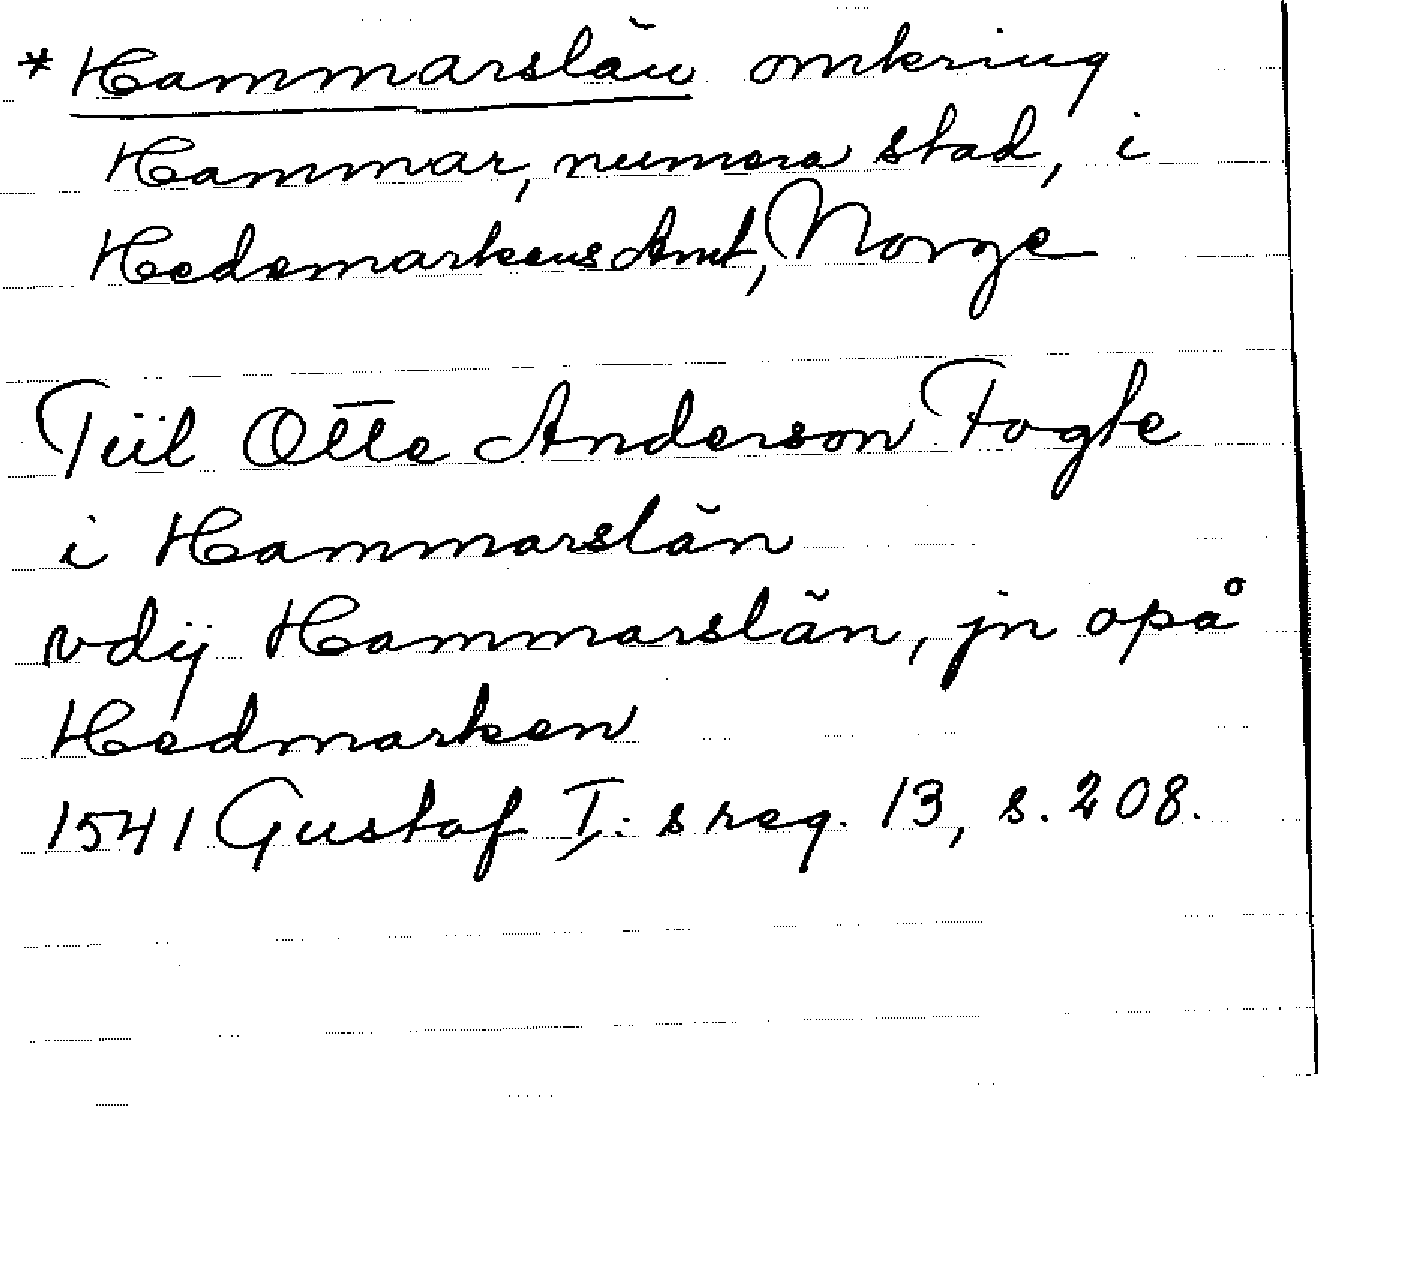 * Hammarslän omkring
Hammar, numera stad, i
Hedemarkens Amt, Norge
Tiil Otte Anderson Fogte
i Hammarslän
vdij Hammarslän, jn opå
Hedmarken
1541 Gustaf I:s reg. 13, s. 208.